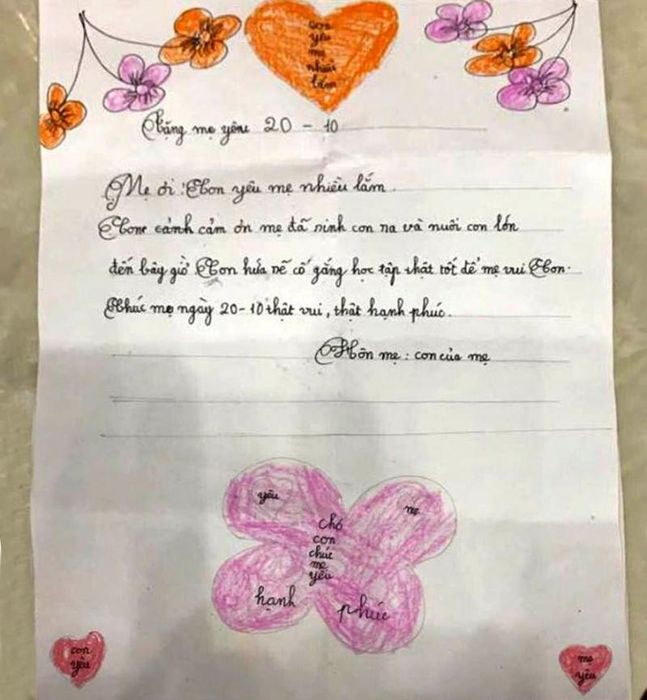 Con
yêu
mẹ
nhiều
lắm
Tặng mẹ yêu 20 - 10
Mẹ ơi ! Con yêu mẹ nhiều lắm.
Con cảnh cảm ơn mẹ đã sinh con ra và nuôi con lớn
đến bây giờ Con hứa sẽ cố gắng học tập thật tốt để mẹ vui Con.
Chúc mẹ ngày 20-10 thật vui, thật hạnh phúc.
Hôn mẹ : con của mẹ
yêu
mẹ
chó
con
chúc
mẹ
yêu
hạnh phúc
con
yêu
mẹ
yêu